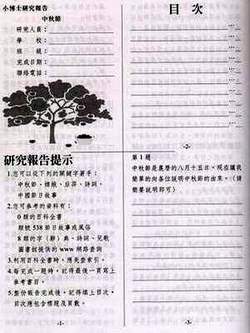 小博士研究報告
中秋節
研究人員：
學　校：
班　級：
完成日期：
聯絡電話：
目 次
-2-
研究報告提示
1.您可以從下列的關鍵字著手：
中秋節、嫦娥、后羿、詩詞、
中國節日故事
2.您可參考的資料有：
0類的百科全書
類號538節日故事或風俗
8類的字（辭）典、詩詞、兒歌
圖書館提供的www網路查詢
3.利用百科全書時，請先查索引。
4.每完成一題時，記得最後一頁寫上
參考書目。
5.整份報告完成後，記得填上目次，
目次請包含標題及頁數。
-1-
第1題
中秋節是農曆的八月十五日，現在讓我
簡單的向各位說明中秋節的由來。（請
簡要說明即可）
-3-